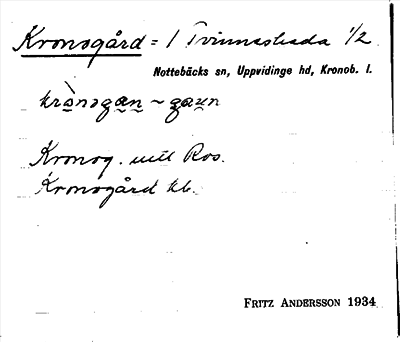 Kronogård = 1 Tvinnesheda 1/2
Nottebäcks sn, Uppvidinge hd, Kronob. l.
krònogan ~ gaun
Kronog. utt Ros.
Kronogård kb.
FRITZ ANDERSSON 1934